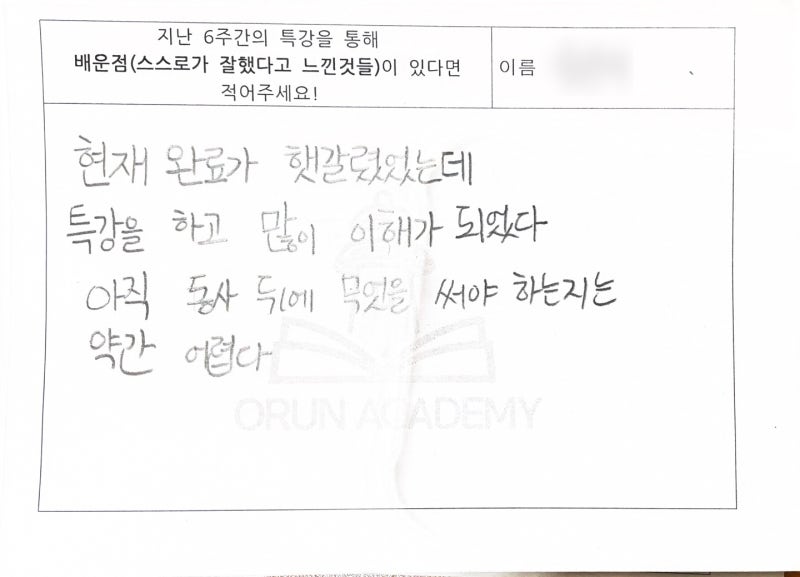 지난 6주간의 특강을 통해
배운점(스스로가 잘했다고 느낀것들)이 있다면
적어주세요!
이름
현재 완료가 햇갈렸었는데
특강을 하고 많이 이해가 되었다
아직 동사 뒤에 무엇을 써야 하는지는
약간 어렵다
ORUN ACADEMY